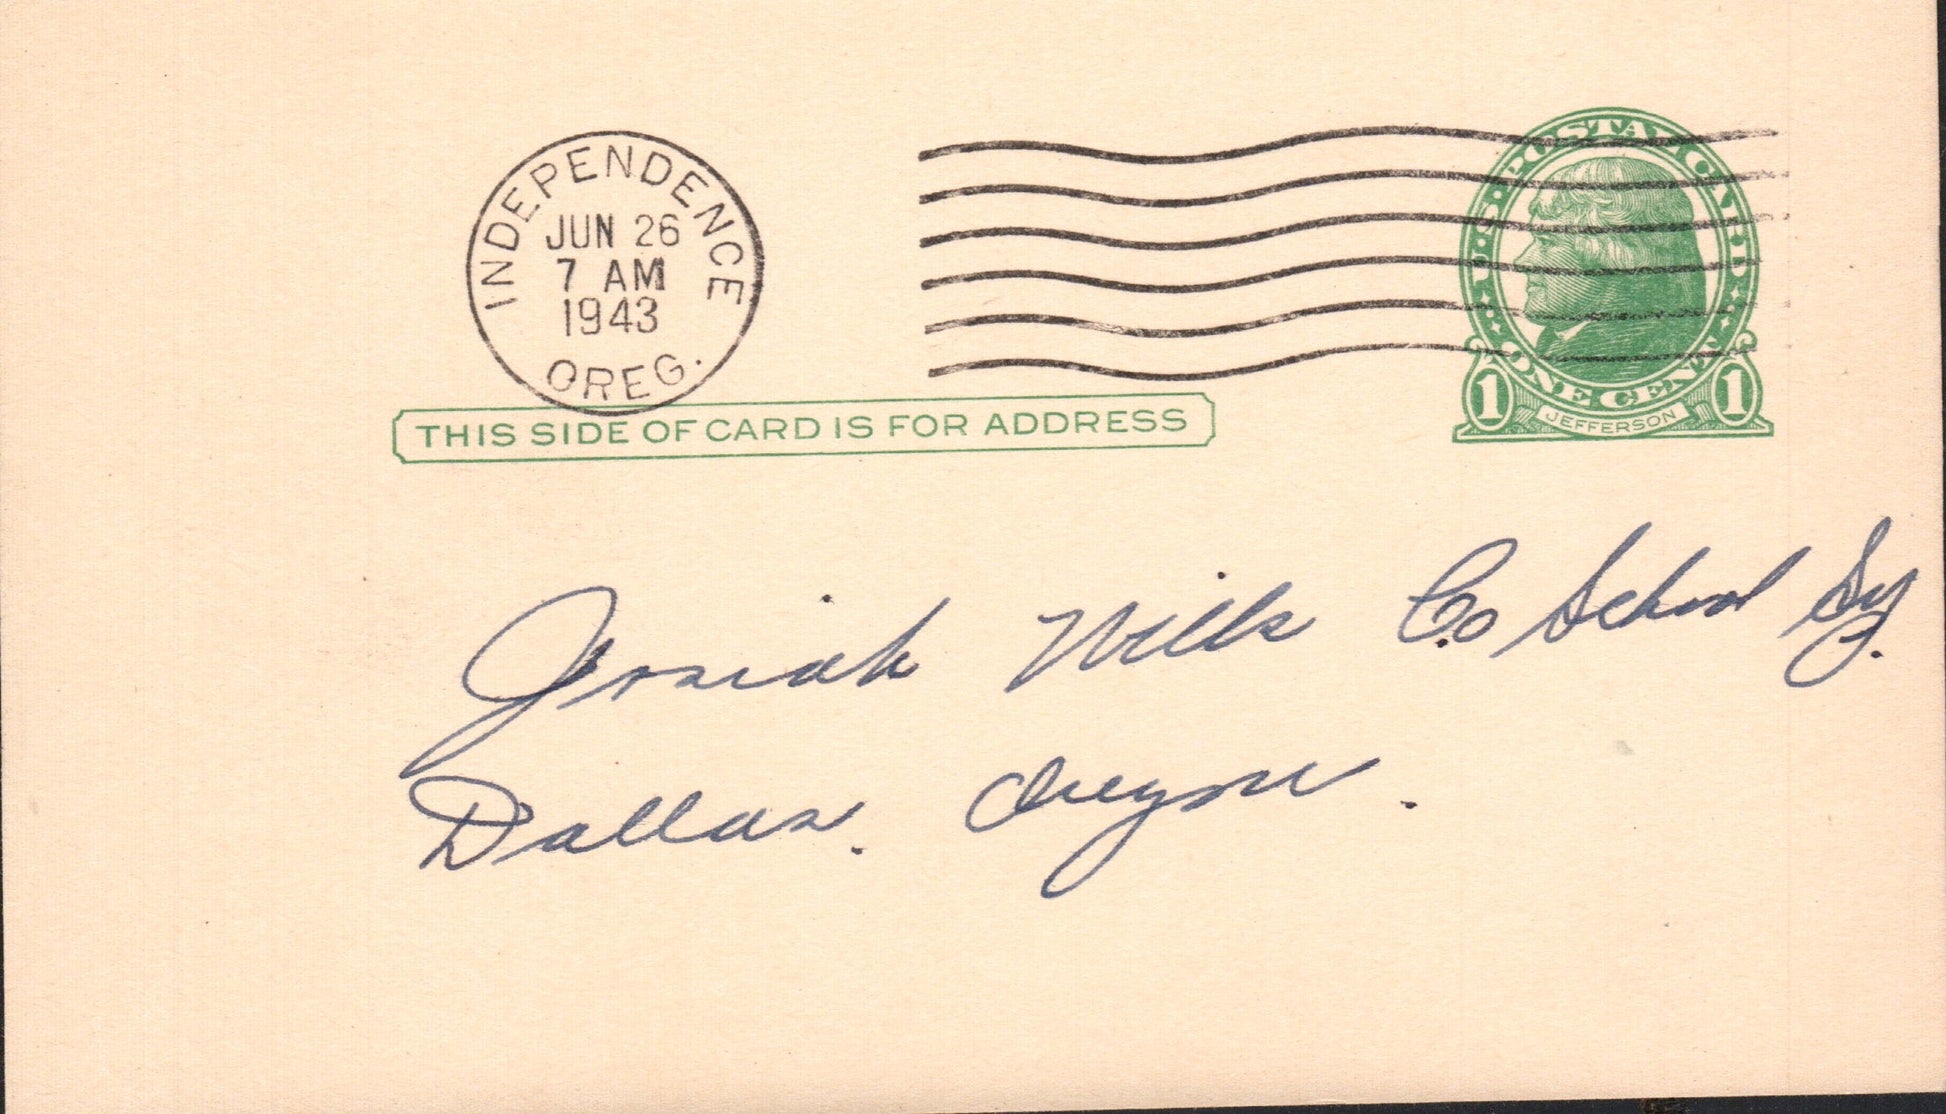 INDEPENDENCE
JUN 26
7 AM
1943
OREG.
U·S·POSTAL CARD
ONE CENT
1 JEFFERSON 1
THIS SIDE OF CARD IS FOR ADDRESS
Josiah Wills Co School Sy.
Dallas. Oregon.